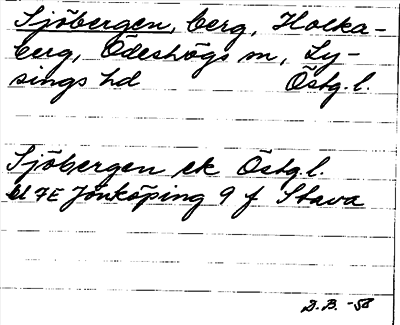 Sjöbergen, berg, Holka-
berg, Ödeshögs sn, Ly-
sings hd Östg. l.
Sjöbergen ek Östg. l.
bl 7E Jönköping 9 f Stava
D.B. -58